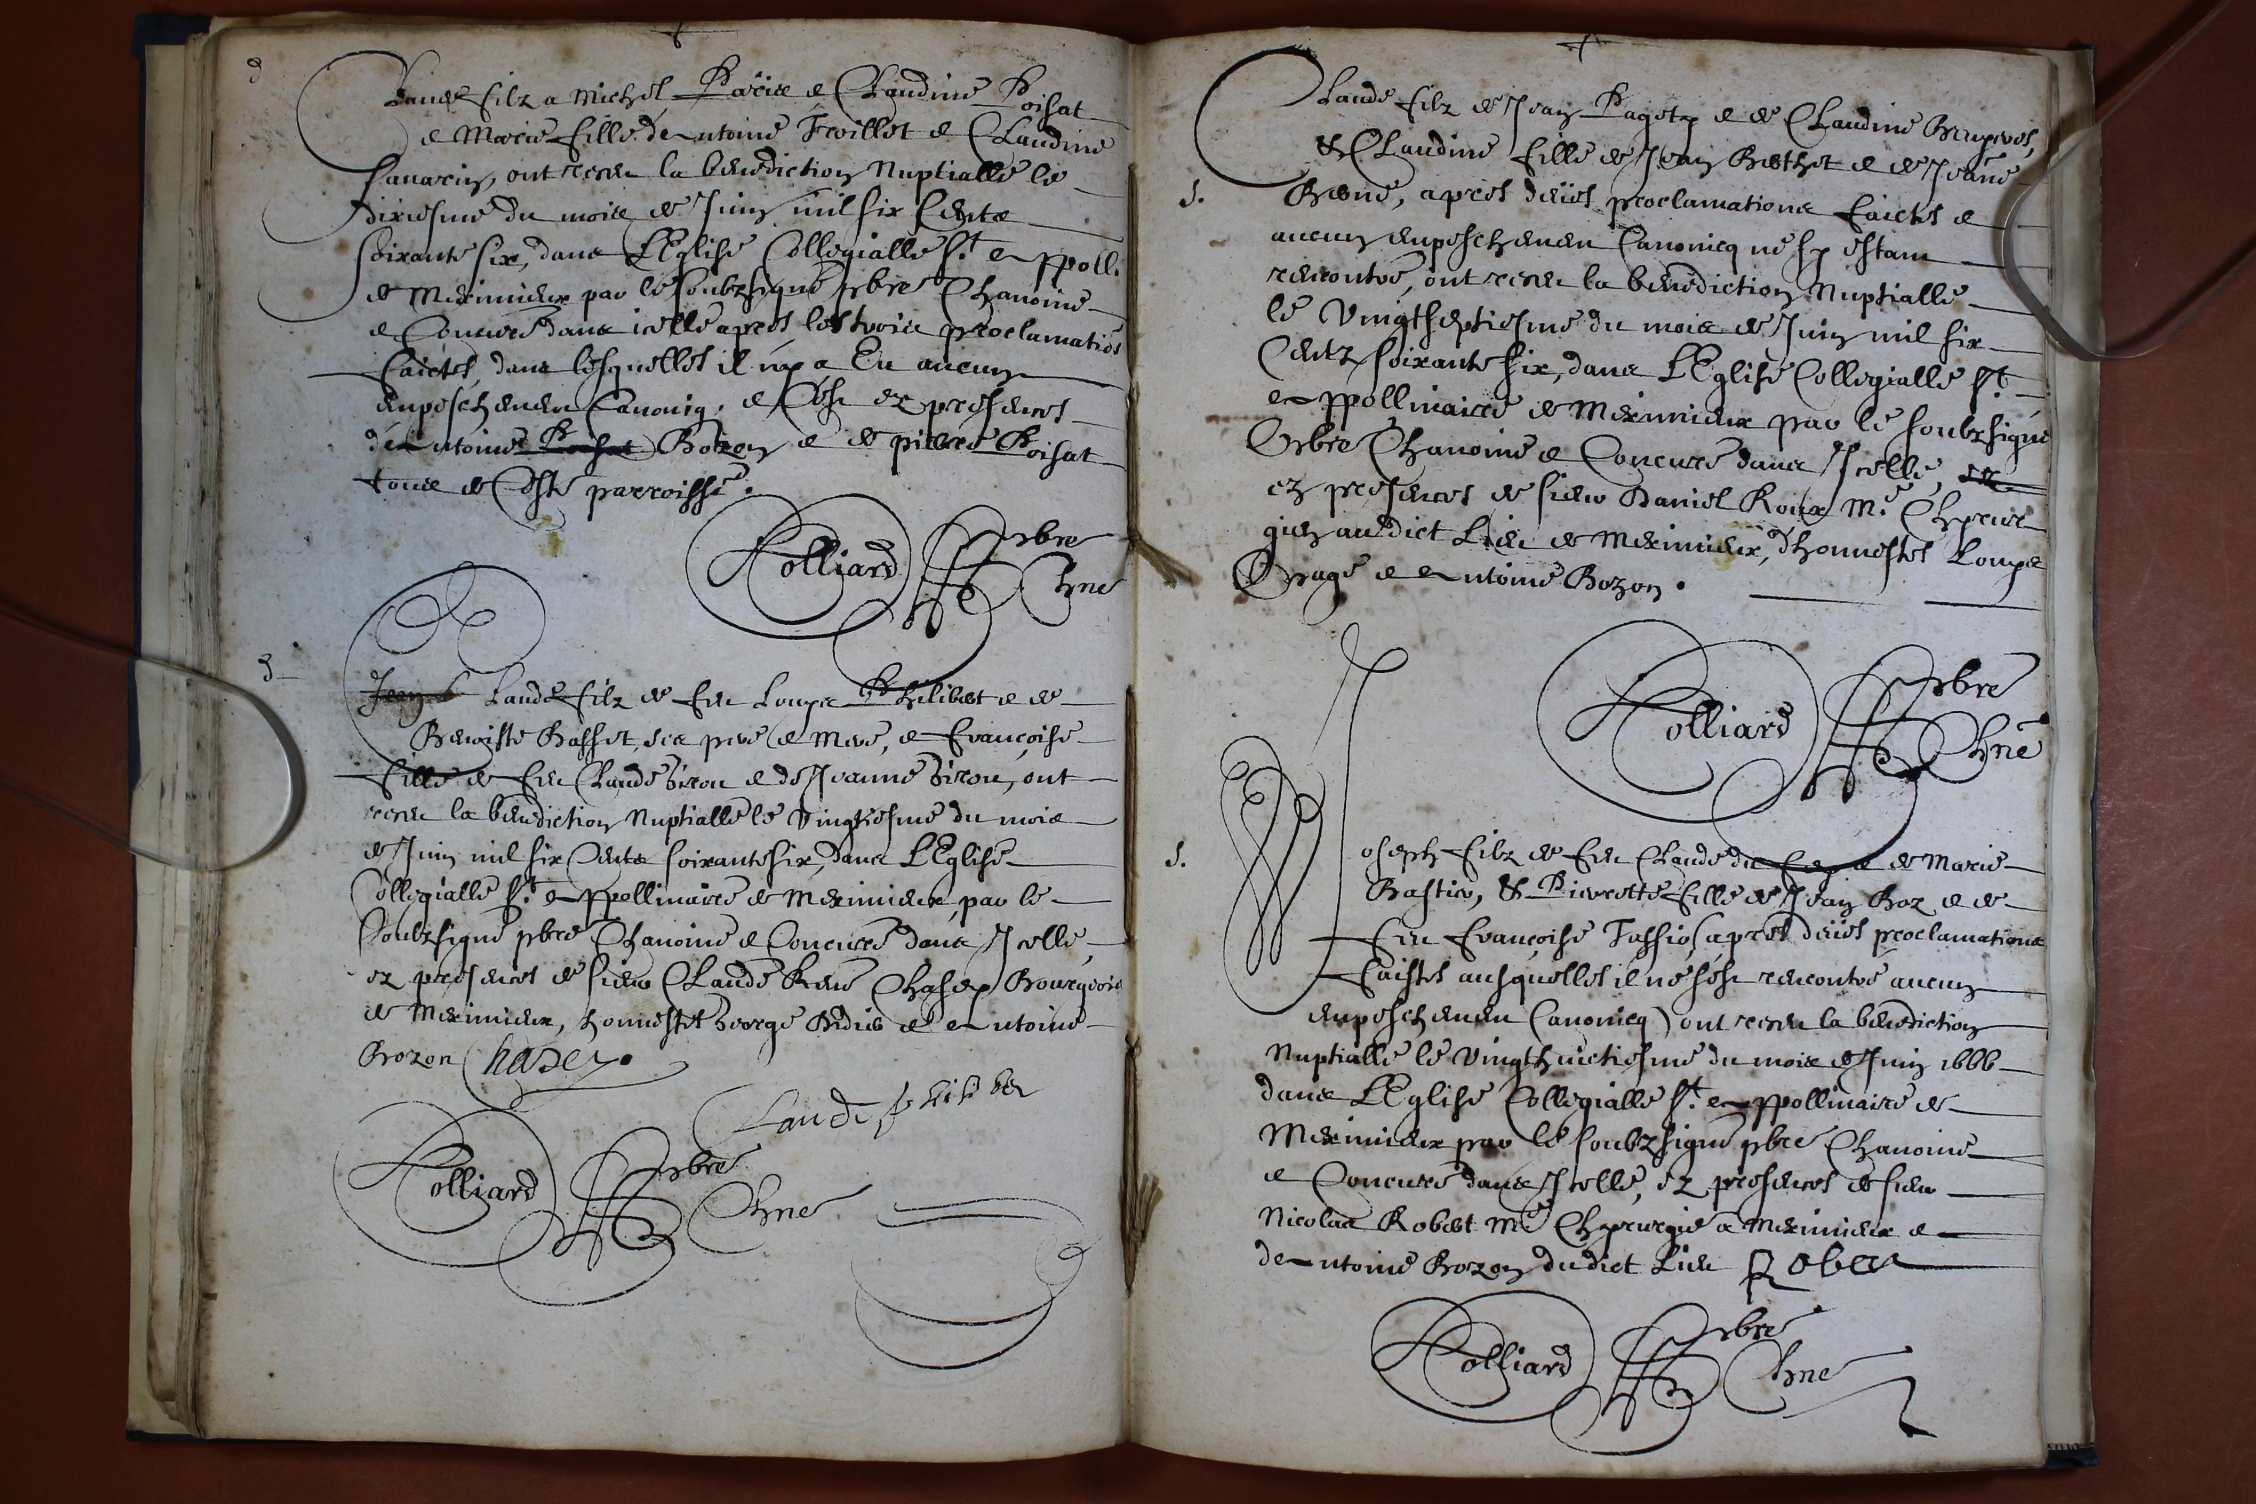 Claude filz a Michel Paris & Claudine Poisat
& Marie fille de Antoine Troillet & Claudine
Savarin, ont receu la benediction Nuptialle le
dixiesme du mois de Juin mil six Cents
soixante six, dans L'Eglise Collegialle St Appoll.
de Meximieux par le soubzsigné pbre Chanoine
& Concuré dans icelle apres les trois proclamatiõs
faictes, dans lesquelles il n'y a Eu aucun
empeschement Canoniq. & Ce ez presences
de Antoine Bozon & de pierre Poisat
tous de Ceste parroisse.
Colliard pbre
Chne
Claude filz de feu Loups Philibert & de
Benoiste Basset, ses pere & mere, & Françoise
fille de feu Claude Giron & de Jeanne Giron, ont
receu la benediction Nuptialle le Vingtiesme du mois
de Juin mil six Cents soixante six, dans L'Eglise
Collegialle St Appollinaire de Meximieux, par le
soubzsigné pbre Chanoine & Concuré dans Icelle,
ez presences de sieur Claude René Chasey Bourgeois
de Meximieux, honnestes George Didier & Antoine
Bozon Chasey.
Claude philiber
Colliard pbre
Chne
Claude filz de Jean Pagety & de Claudine
& Claudine fille de Jean Berthet & de Jeane
Brene, apres deües proclamations faictes &
aucun empeschement Canonicq ne sy estant
rencontré, ont receu la benediction Nuptialle
le Vingtseptiesme du mois de Juin mil six
Centz soixante six, dans L'Eglise Collegialle St
Appollinaire de Meximieux par le soubzsigné
Pbre Chanoine & Concuré dans Icelle,
ez presences de sieur Daniel Roux Me Chyrur
gien audict Lieu de Meximieux, d'honnestes Loups
Orage & Antoine Bozon.
Colliard pbre
Chne
Joseph filz de feu Claude & de Marie
Bastier, & Pierrette fille de Jean Boz & de
feu Françoise Tassio (apres deües proclamations
faictes ausquelles il ne s'est rencontré aucun
empeschement Canonicq) ont receu la benediction
Nuptialle le Vingthuictiesme du mois de Juin 1666
dans L'Eglise Collegialle St Appollinaire de
Meximieux par le soubzsigné pbre Chanoine
& Concuré dans Icelle, ez presences de sieur
Nicolas Robert Me Chyrurgie a Meximieux &
de Antoine Bozon dudict Lieu Robert
Colliard pbre
Chne